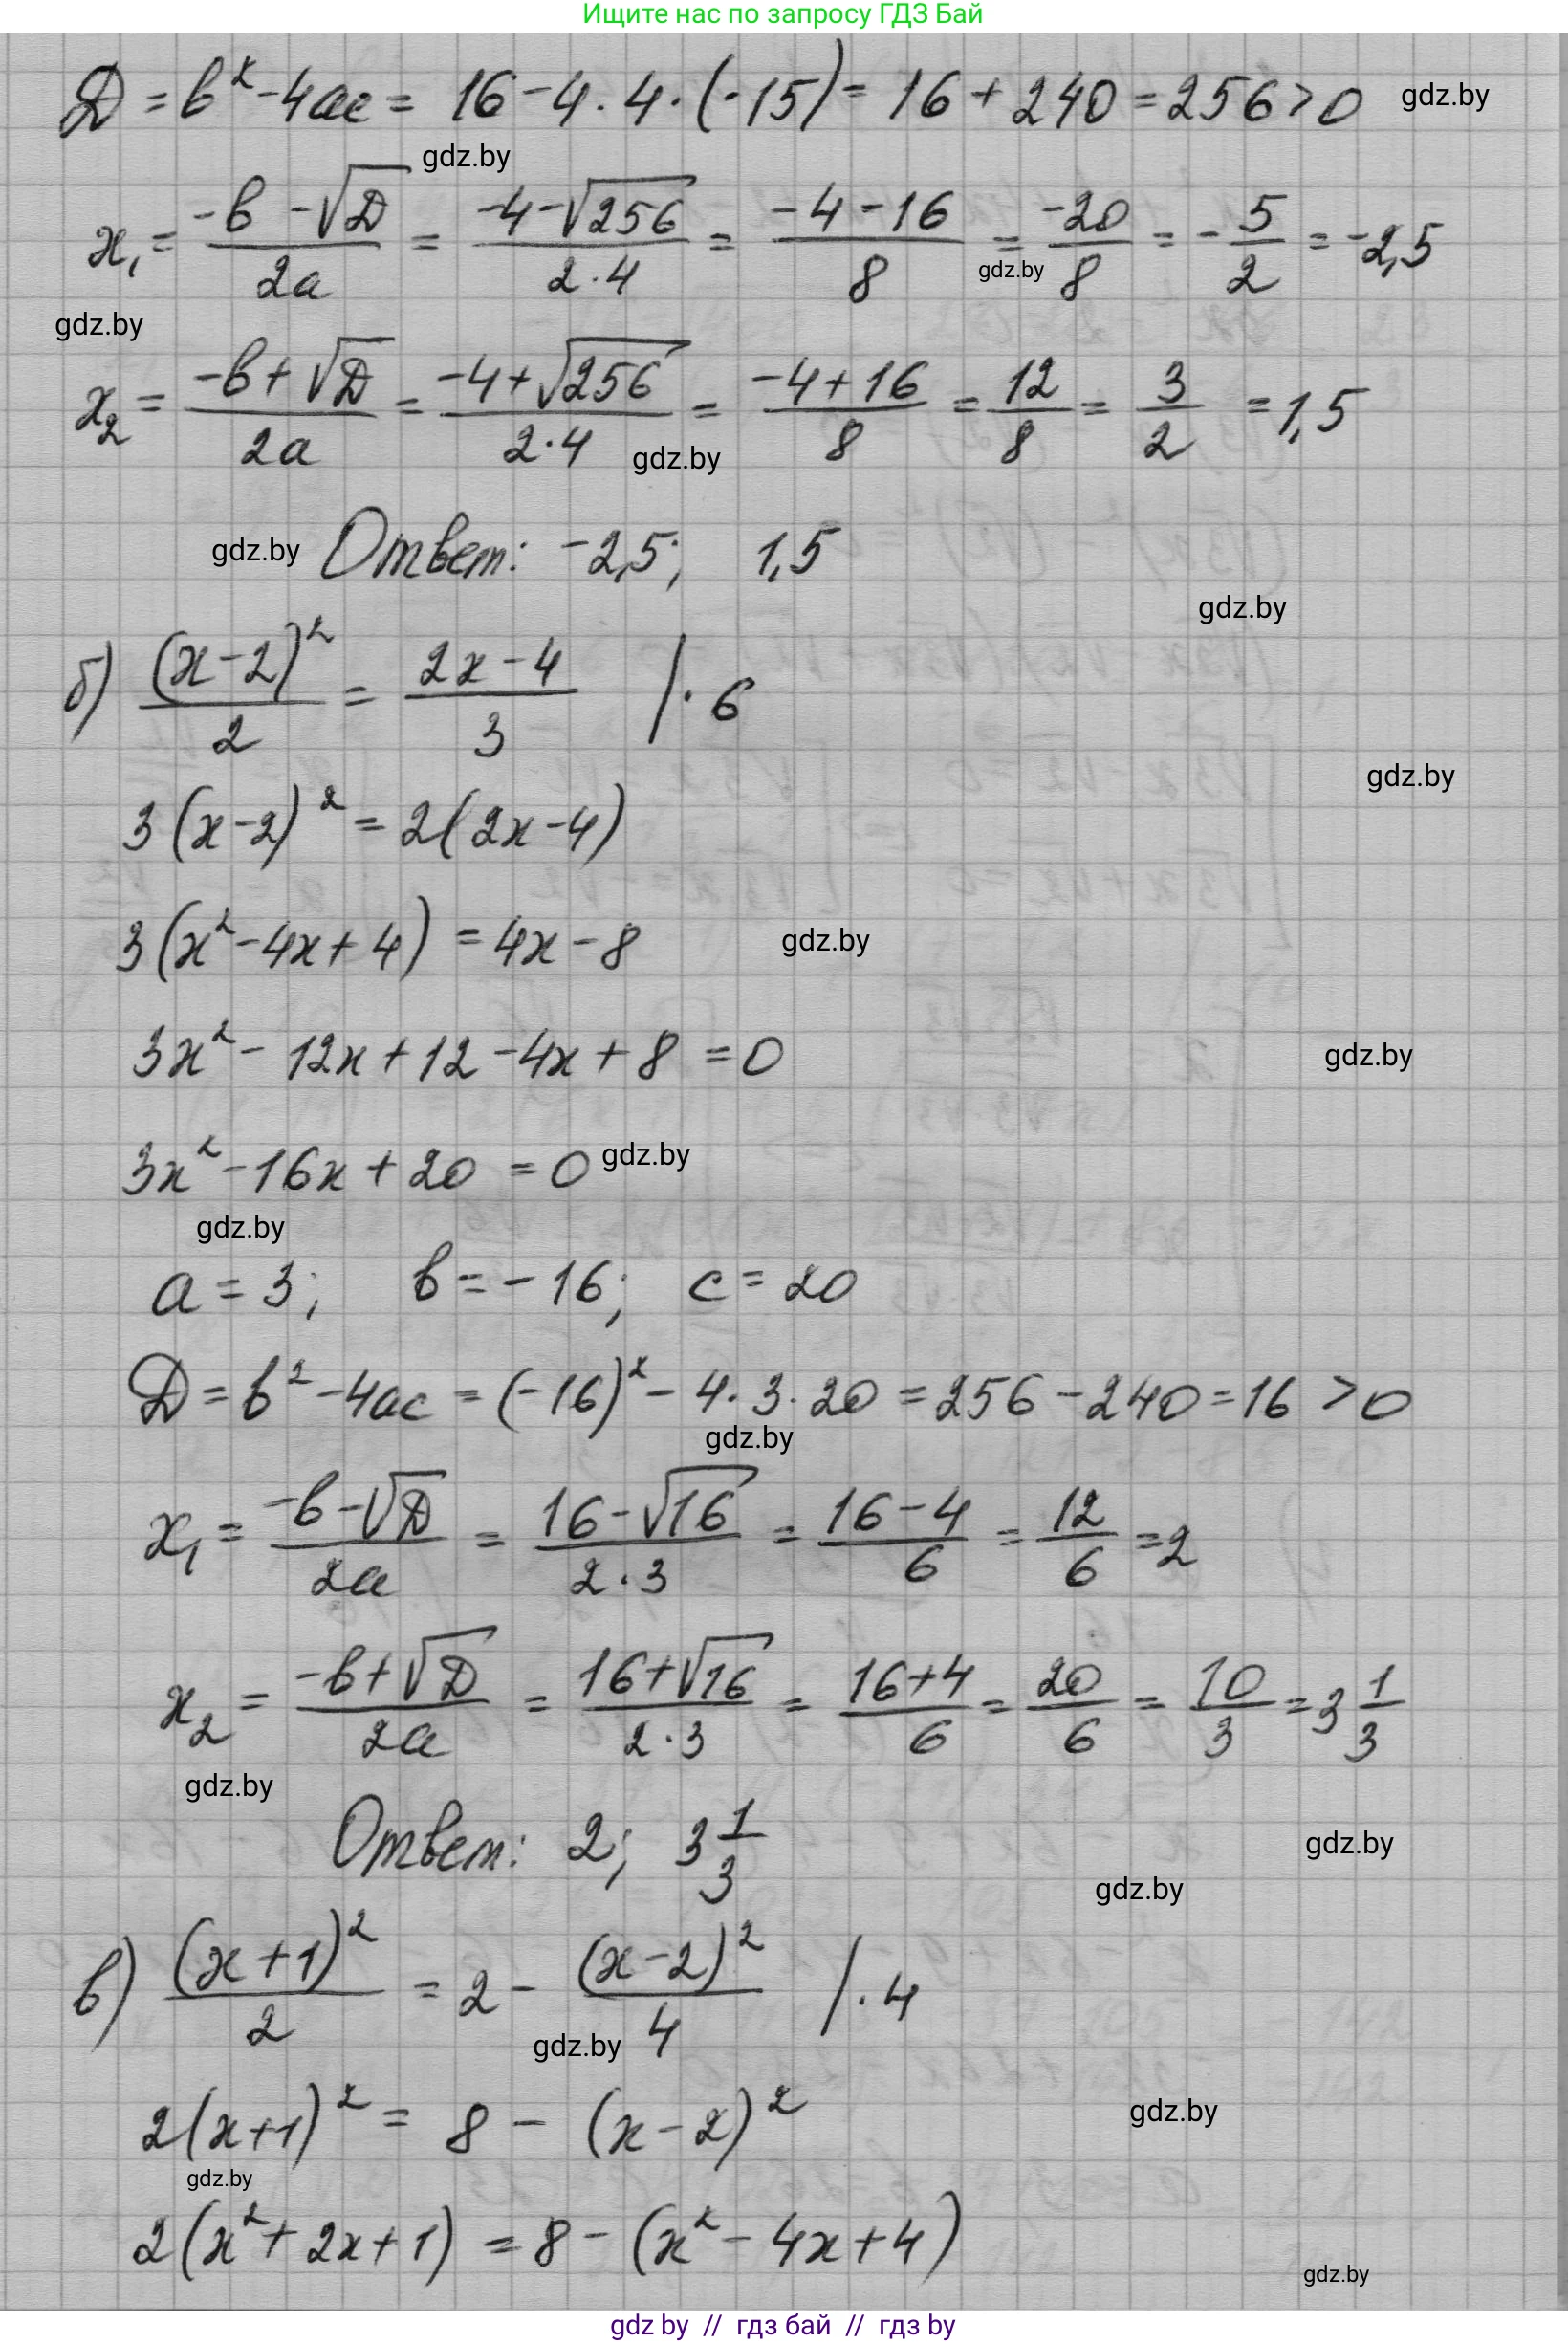 Ищите нас по запросу ГДЗ Бай
D = b² - 4ac = 16 - 4 · 4 · (-15) = 16 + 240 = 256 > 0 gdz.by
gdz.by
x₁ = (-b - √D)/(2a) = (-4 - √256)/(2·4) = (-4 - 16)/8 = -20/8 = -5/2 = -2,5
gdz.by
gdz.by
x₂ = (-b + √D)/(2a) = (-4 + √256)/(2·4) = (-4 + 16)/8 = 12/8 = 3/2 = 1,5
gdz.by
gdz.by Ответ: -2,5; 1,5
gdz.by
б) (x-2)²/2 = (2x-4)/3 /·6
gdz.by
3(x-2)² = 2(2x-4)
3(x² - 4x + 4) = 4x - 8 gdz.by
3x² - 12x + 12 - 4x + 8 = 0 gdz.by
3x² - 16x + 20 = 0 gdz.by
gdz.by
a = 3; b = -16; c = 20
D = b² - 4ac = (-16)² - 4 · 3 · 20 = 256 - 240 = 16 > 0
gdz.by
x₁ = (-b - √D)/(2a) = (16 - √16)/(2·3) = (16 - 4)/6 = 12/6 = 2
x₂ = (-b + √D)/(2a) = (16 + √16)/(2·3) = (16+4)/6 = 20/6 = 10/3 = 3 1/3
gdz.by
Ответ: 2; 3 1/3 gdz.by
gdz.by
в) (x+1)²/2 = 2 - (x-2)²/4 /·4
gdz.by
2(x+1)² = 8 - (x-2)² gdz.by
gdz.by
2(x² + 2x + 1) = 8 - (x² - 4x + 4)
gdz.by
gdz by // гдз бай // гдз by